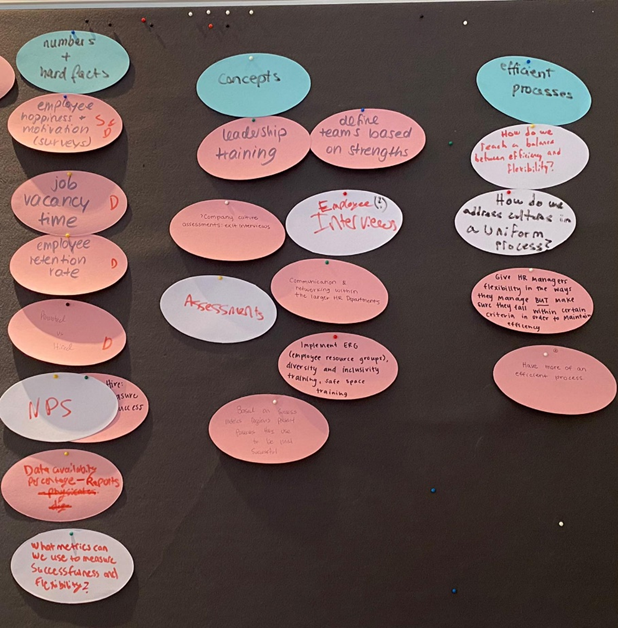 numbers
+
hard facts
employee
happiness +
motivation
(surveys)
S&D
job
vacancy
time
D
employee
retention
rate
D
D
NPS
Data availability
percentage - Reports
What metrics can
we use to measure
successfulness and
flexibility?
concepts
leadership
training
define
teams based
on strengths
Employee (!)
Interviews
Assessments
Communication &
networking within
the larger HR Department
Implement ERG
(employee resource groups),
diversity and inclusivity
training, safe space
training
efficient
processes
How do we
teach a balance
between efficiency and
flexibility?
How do we
address culture in
a uniform
process?
Give HR managers
flexibility in the ways
they manage BUT make
sure they fall within certain
criteria in order to maintain
efficiency
of an
efficient process